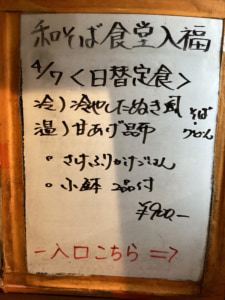 和そば食堂入福
4/7 <日替定食>
冷）冷やしたぬき風 そば・うどん
温）甘あげ昆布
。さけふりかけごはん
。小鉢 2品付
¥900.-
-入口こちら⇒